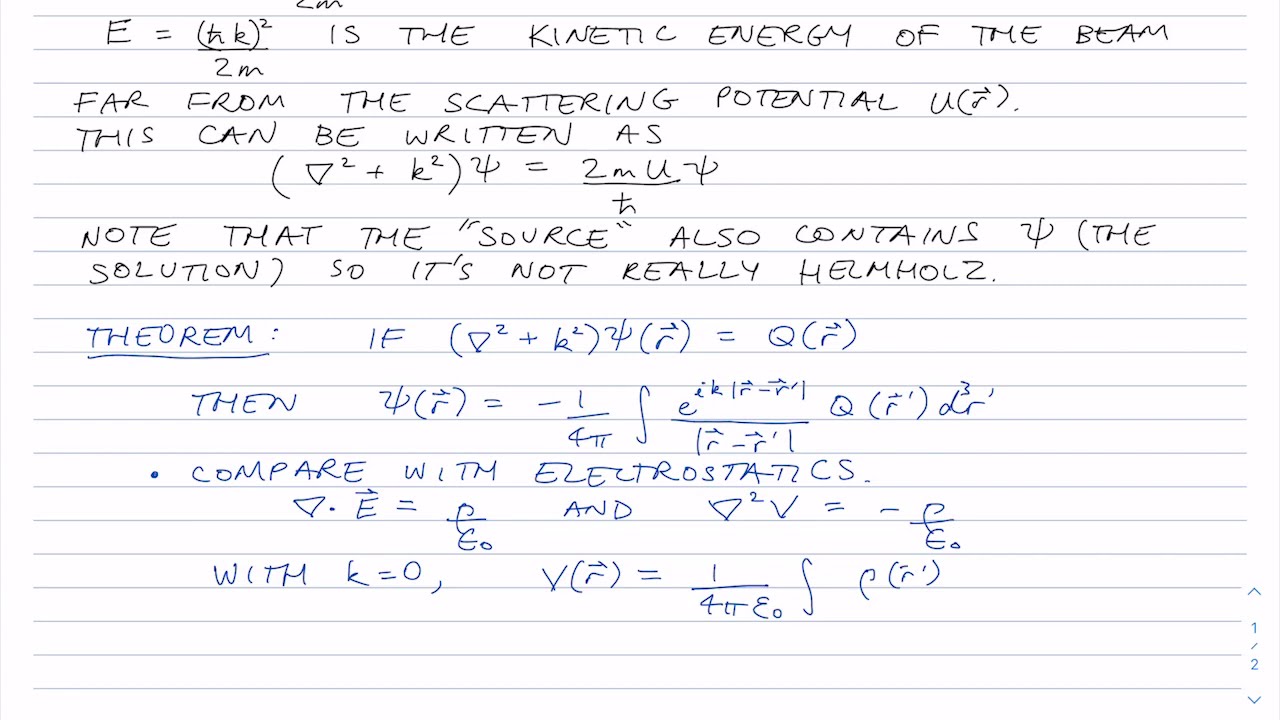 2m
E = (ħk)²/2m IS THE KINETIC ENERGY OF THE BEAM
FAR FROM THE SCATTERING POTENTIAL U(r⃗).
THIS CAN BE WRITTEN AS
(∇² + k²)Ψ = 2mU/ħ Ψ
NOTE THAT THE "SOURCE" ALSO CONTAINS Ψ (THE
SOLUTION) SO IT'S NOT REALLY HELMHOLZ.
THEOREM: IF (∇² + k²)Ψ(r⃗) = Q(r⃗)
THEN Ψ(r⃗) = -1/4π ∫ e^{ik|r⃗-r⃗'|}/|r⃗-r⃗'| Q(r⃗')d³r'
• COMPARE WITH ELECTROSTATICS.
∇·E⃗ = ρ/ε₀ AND ∇²V = -ρ/ε₀
WITH k=0, V(r⃗) = 1/4πε₀ ∫ ρ(r⃗')
1
/
2